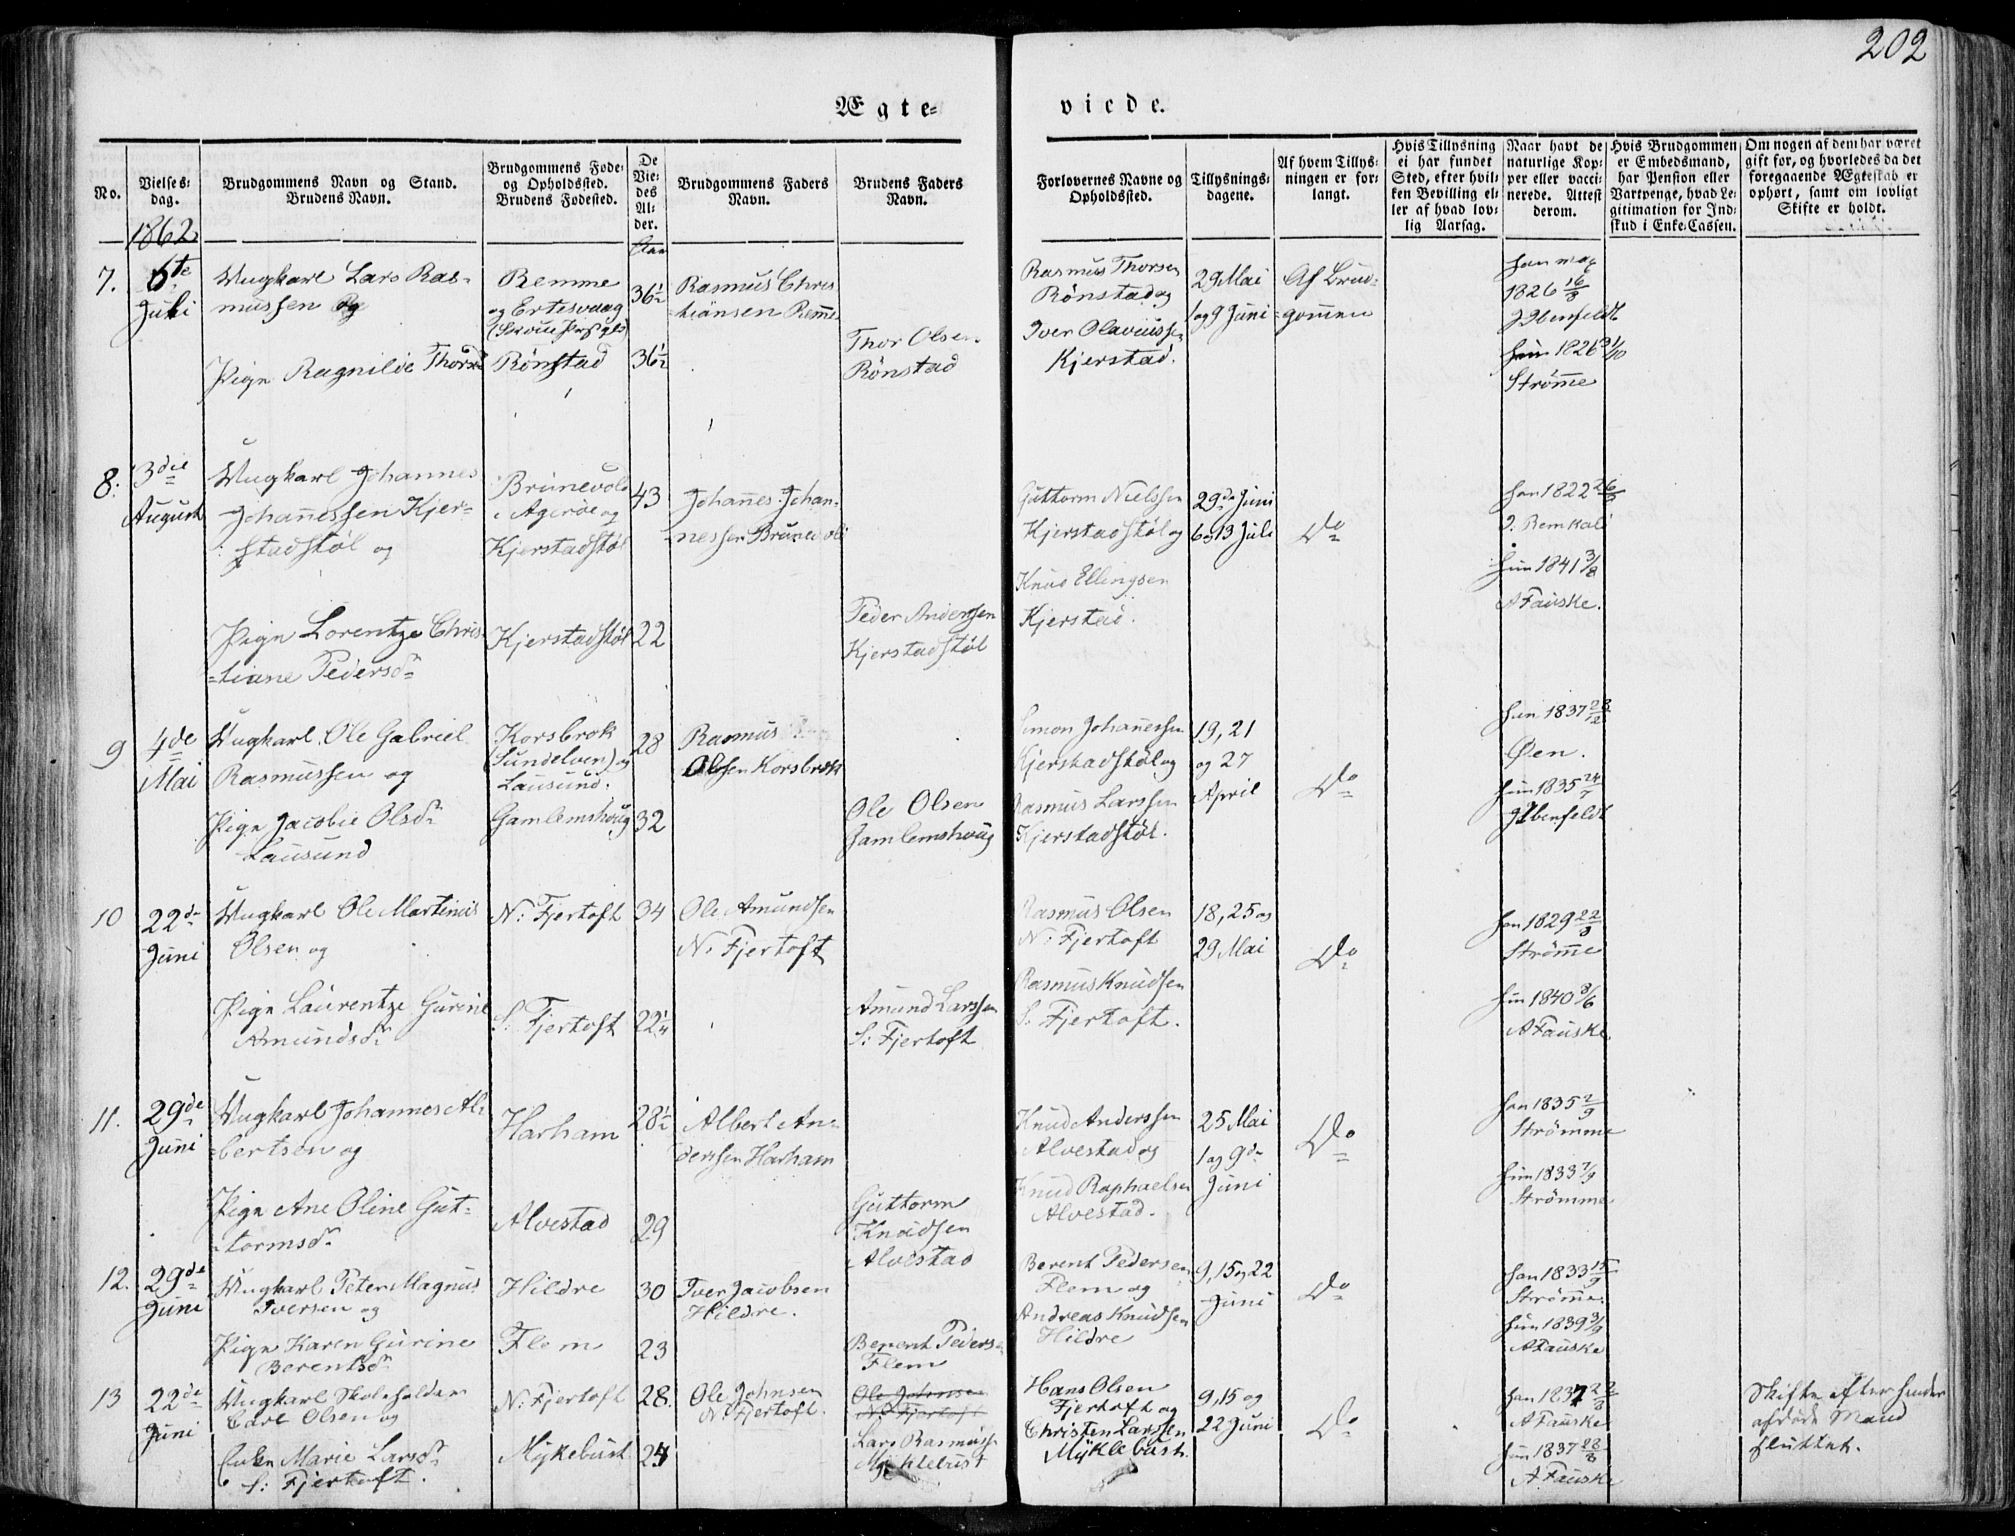 202
Ægte=
viede.
No.
Vielses=
dag.
Brudgommens Navn og Stand.
Brudens Navn.
Brudgommens Føde=
og Opholdssted.
Brudens Fødested.
De
Vie=
des
Al=
der.
Brudgommens Faders
Navn.
Brudens Faders
Navn.
Forlovernes Navne og
Opholdssted.
Tillysnings=
dagene.
Af hvem Tillys=
ningen er for=
langt.
Hvis Tillysning
ei har fundet
Sted, efter hvil=
ken Bevilling el=
ler af hvad lov=
lig Aarsag.
Naar havt de
naturlige Kop=
per eller vacci=
nerede. Attest
derom.
Hvis Brudgommen
er Embedsmand,
har Pension eller
Vartpenge, hvad Le=
gitimation for Ind=
skud i Enke-Cassen.
Om nogen af dem har været
gift før, og hvorledes da det
foregaaende Ægteskab er
ophørt, samt om lovligt
Skifte er holdt.
1862
Aar
7.
6te
Juli
Ungkarl Lars Ras=
mussen og
Pige Ragnilde Thorsd
Remme
og Ertesvaag
Rønstad
36½
36½
Rasmus Chris
=tiansen Remme
Thor Olsen
Rønstad
Rasmus Thorsen
Rønstad og
Iver Olavussen
Kjerstad.
29 Mai
1 og 9 Juni
Af Brud=
gommen
han
1826 16/8
J Ibenfeldt
hun 1826 31/10
Strømme
8.
3die
August
Ungkarl Johannes
Johannessen Kjer=
stadstøl og
Pige Lorentze Chris
=tiane Pedersdr
Brunevold
Agerøe og
Kjerstadstøl
Kjerstadstøl
43
22
Johannes Johan=
nessen Brunevold
Peder Anderssen
Kjerstadstøl
Guttorm Nielssen
Kjerstadstøl og
Knud Ellingsen
Kjerstad.
29de Juni
6 og 13 Juli
Do
han 1822 26/
hun 1841 3/8
A Fauske.
9
4de
Mai
Ungkarl Ole Gabriel
Rasmussen og
Pige Jacobie Olsdr
Lausund
Korsbrek
(Sundelven) og
Lausund.
Gamlemshoug
28
32
Rasmus
Olsen Korsbrek
Ole Olsen
Gamlemshoug
Simon Johanessen
Kjerstadstøl og
Rasmus Larssen
Kjerstadstøl.
19, 21
og 27
April
Do
han 1837 28/12
Øen.
hun 1835 24/7
J Ibenfeldt
10
22de
Juni
Ungkarl Ole Martinus
Olsen og
Pige Laurentze Gurine
Amundsdr
N: Fjertoft
S: Fjertoft
34
22¼
Ole Amundsen
N: Fjertoft
Amund Larssen
S: Fjertoft
Rasmus Olsen
N: Fjertoft
Rasmus Knudsen
S: Fjertoft.
18, 25 og
29 Mai
Do
han 1829 22/8
Strømme
hun 1840 8/6
A Fauske
11.
29de
Juni
Ungkarl Johannes Al=
bertsen og
Pige Ane Oline Gut=
tormsdr
Harham
Alvestad
28½
29
Albert An=
derssen Harham
Guttorm
Knudsen
Alvestad
Knud Anderssen
Alvestad og
Knud Raphaelsen
Alvestad.
25 Mai
1 og 9de
Juni
Do
han 1835 2/9
Strømme
hun 1833 7/9
Strømme
12.
29de
Juni
Ungkarl Peter Magnus
Iversen og
Pige Karen Gurine
Berentsdr
Hildre
Flem
30
23
Iver Jacobsen
Hildre.
Berent Peders
Flem
Berent Pedersen
Flem og
Andreas Knudsen
Hildre
9, 15 og 22
Juni
Do
han 1833 15/9
Strømme.
hun 1839 3/9
A Fauske
13
22de
Juni
Ungkarl Skoleholder
Carl Olsen og
Enken Marie Larsdr
S: Fjertoft.
N: Fjertoft
Myklebust
28.
24
Ole Johnsen
N: Fjertoft.
Ole Johnsen
N: Fjertoft
Lars Rasmuss
Myklebust
Hans Olsen
Fjertoft og
Christen Larssen
Myklebust.
9, 15 og
22 Juni
Do
han 1837 22/8
A Fauske
hun 1837 28/8
A. Fauske
Skifte efter hendes
afdøde Mand
sluttet.